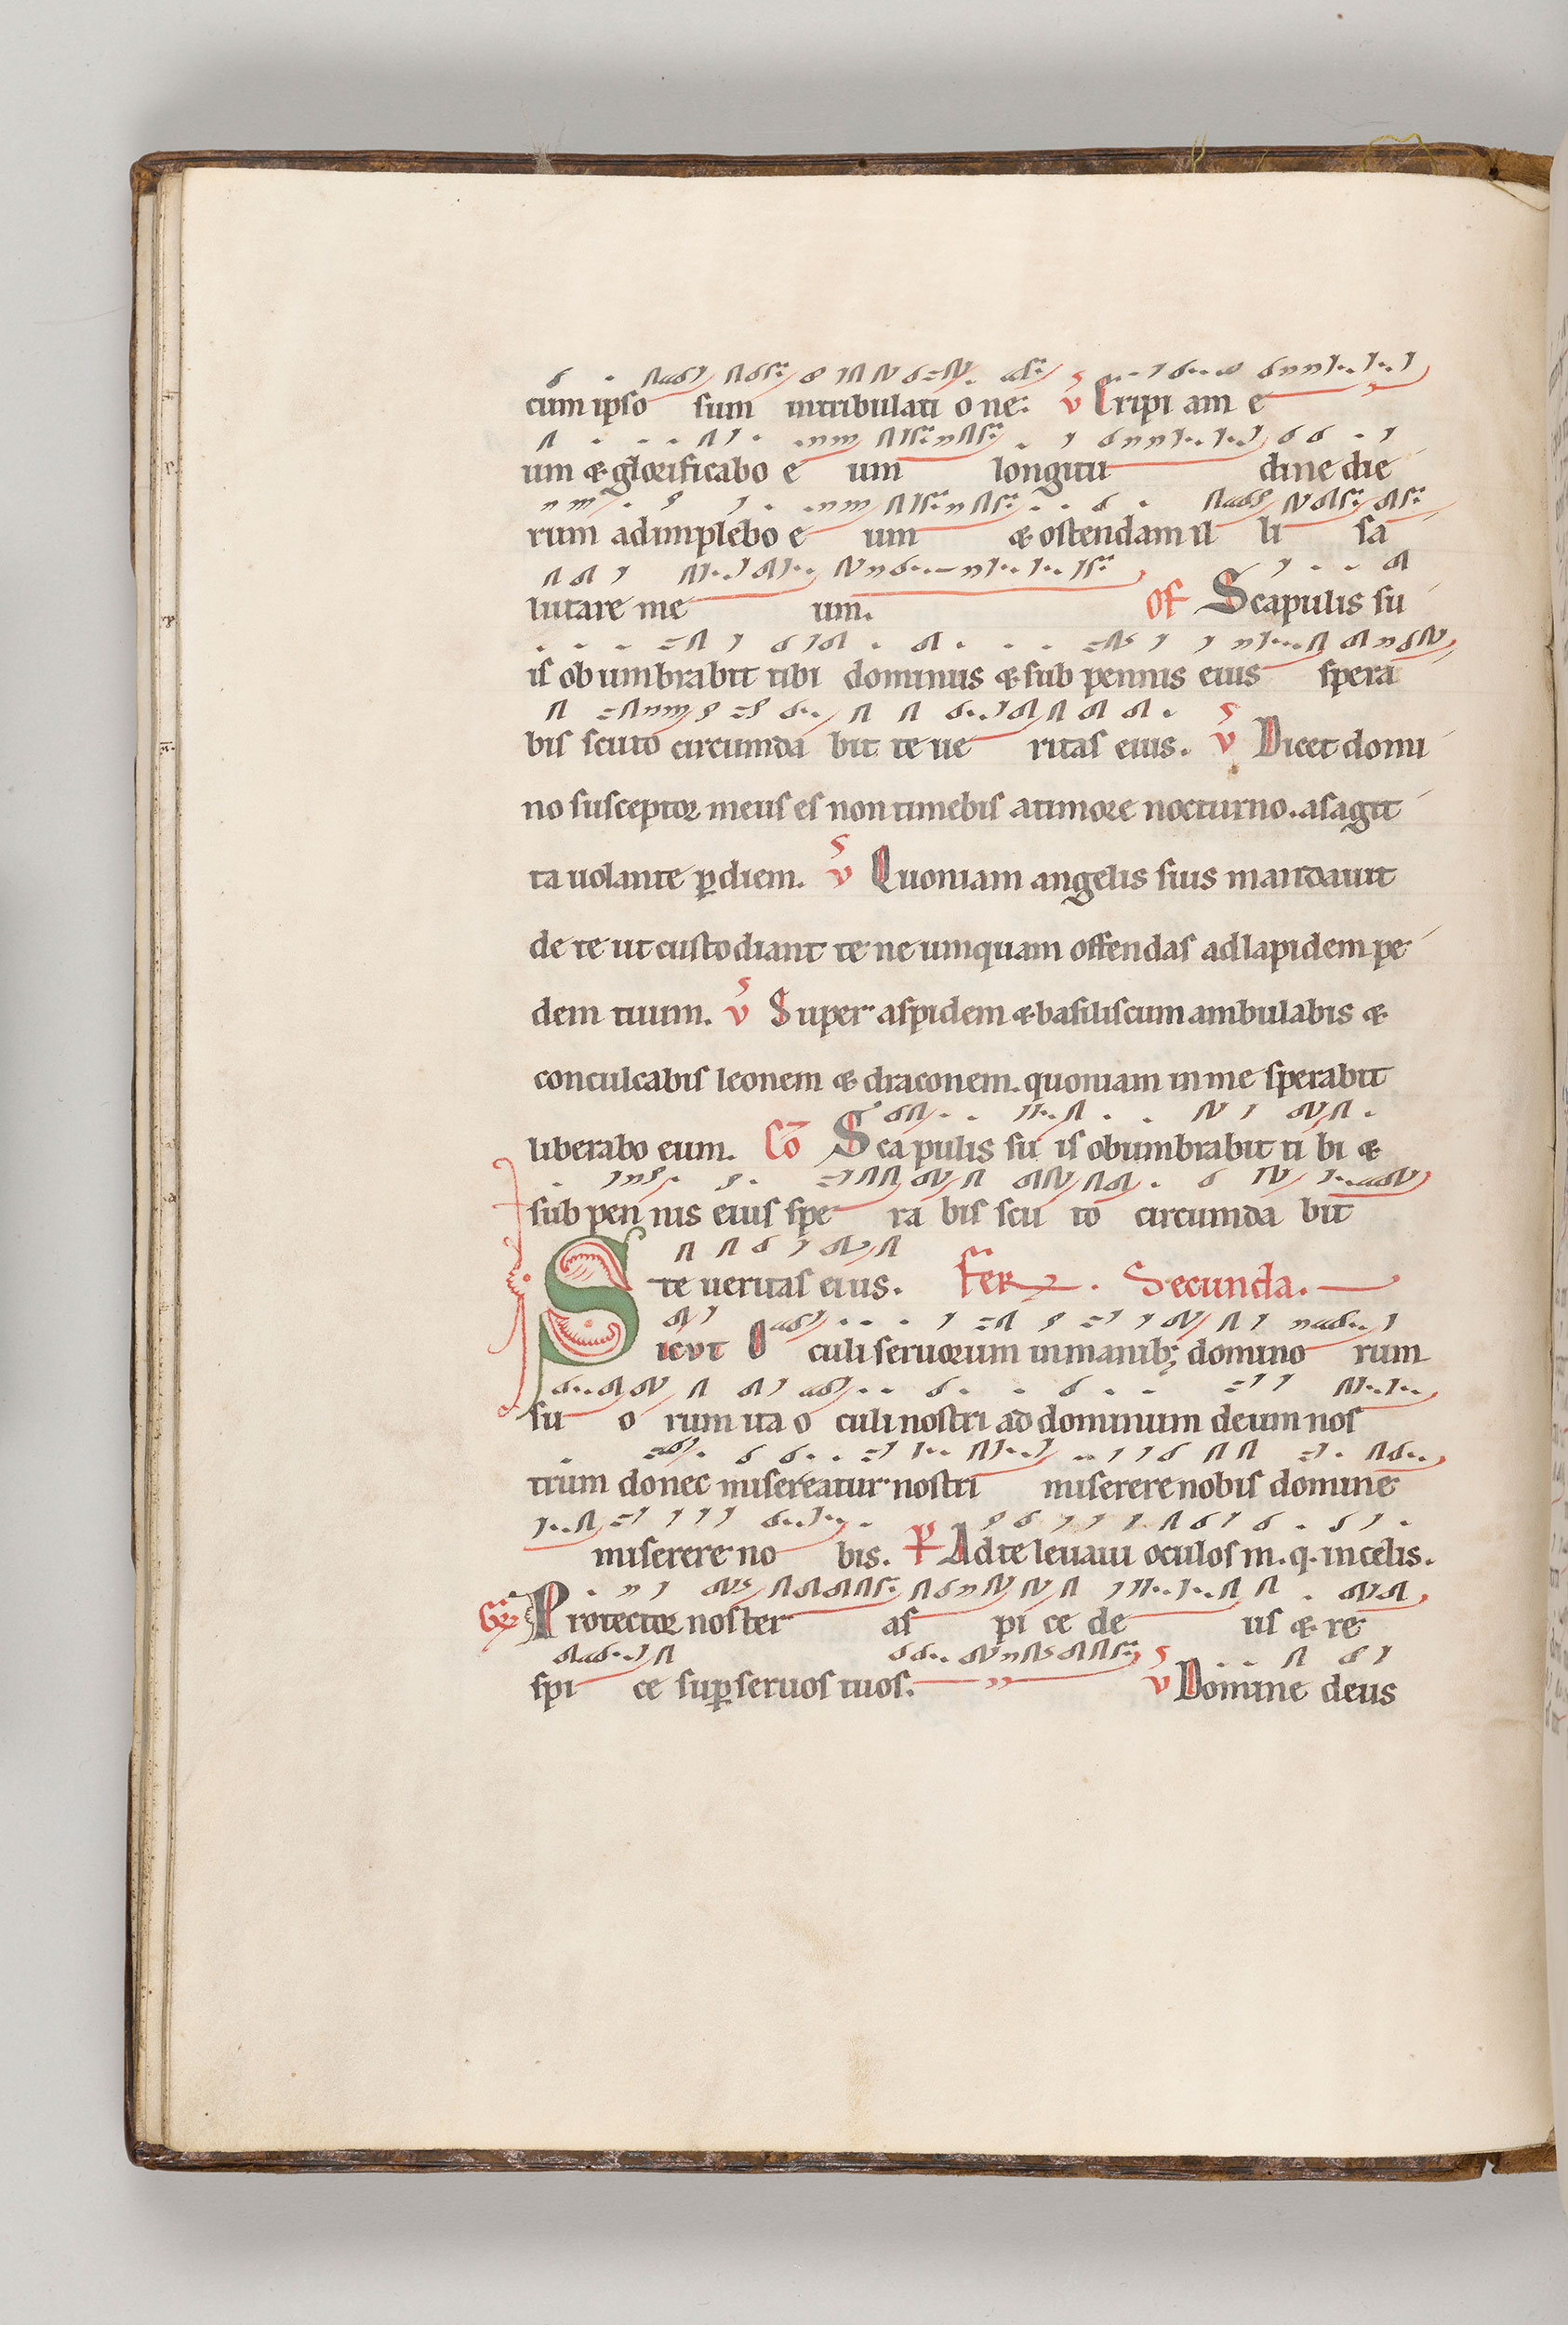 cum ipso sum intribulati one: v Eripi am e
um & glorificabo e um longitu dine die
rum adimplebo e um & ostendam il li sa
lutare me um. Of Scapulis su
is obumbrabit tibi dominus & sub pennis eius spera
bis scuto circumda bit te ue ritas eius. v Dicet domi
no susceptor meus es non timebis atimore nocturno. asagit
ta uolante p̱diem. v Quoniam angelis suis mandauit
de te ut custodiant te ne umquam offendas adlapidem pe
dem tuum. v Super aspidem & basiliscum ambulabis &
conculcabis leonem & draconem. quoniam in me sperabit
liberabo eum. Cō Scapulis su is obumbrabit ti bi &
sub pen nis eius spe ra bis scu to circumda bit
te ueritas eius. Fer. Secunda.
Sicut O culi seruorum in manib; domino rum
su o rum ita o culi nostri ad dominum deum nos
trum donec misereatur nostri miserere nobis domine
miserere no bis. P Ad te leuaui oculos m. q. in celis.
Gr Protector noster as pi ce de us & re
spi ce sup̱ seruos tuos. v Domine deus